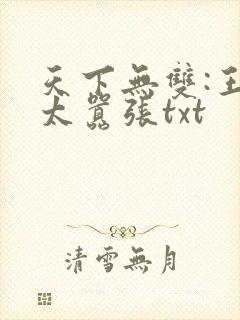 天下無雙:王
太囂張txt
清雪無月